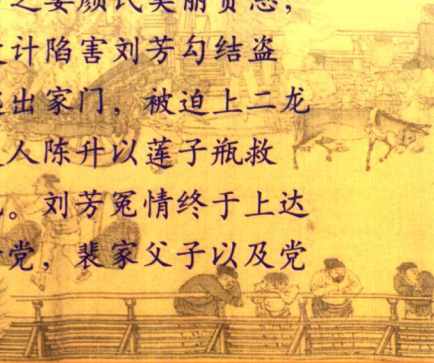 之妻颜氏美丽贤惠，
计陷害刘芳勾结盗
出家门，被迫上二龙
人陈升以莲子瓶救
。刘芳冤情终于上达
党，裴家父子以及党